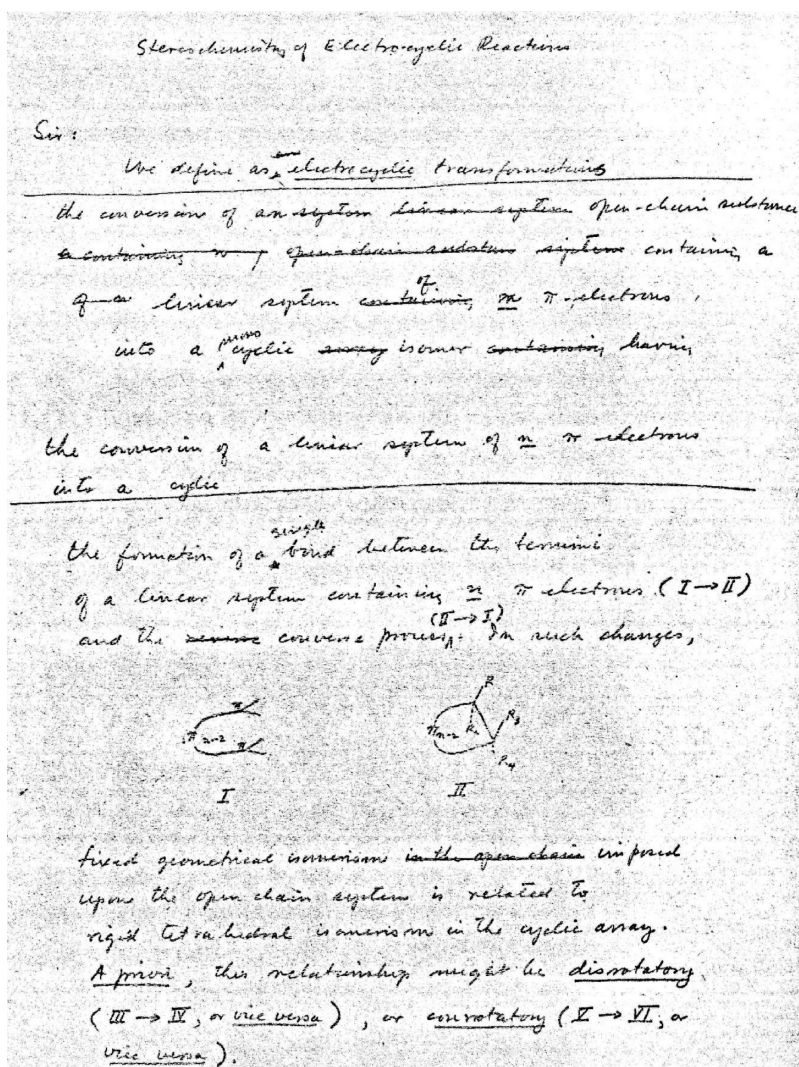 Stereochemistry of Electrocyclic Reactions
Sir:
We define as electrocyclic transformations
the conversion of an system linear system open-chain substance
a containing n, open-chain system containing a
of a linear system containing of n π-electrons,
into a mono cyclic array isomer containing having
the conversion of a linear system of n π-electrons
into a cyclic
the formation of a single bond between the termini
of a linear system containing n π electrons (I → II)
and the reverse converse process (II → I). In such changes,
π n-2 π π
I
π n-2 R R₂ R₃ R₄
II
fixed geometrical isomerism in the open chain imposed
upon the open chain system is related to
rigid tetrahedral isomerism in the cyclic array.
A priori, this relationship might be disrotatory
(III → IV, or vice versa), or conrotatory (V → VI, or
vice versa).